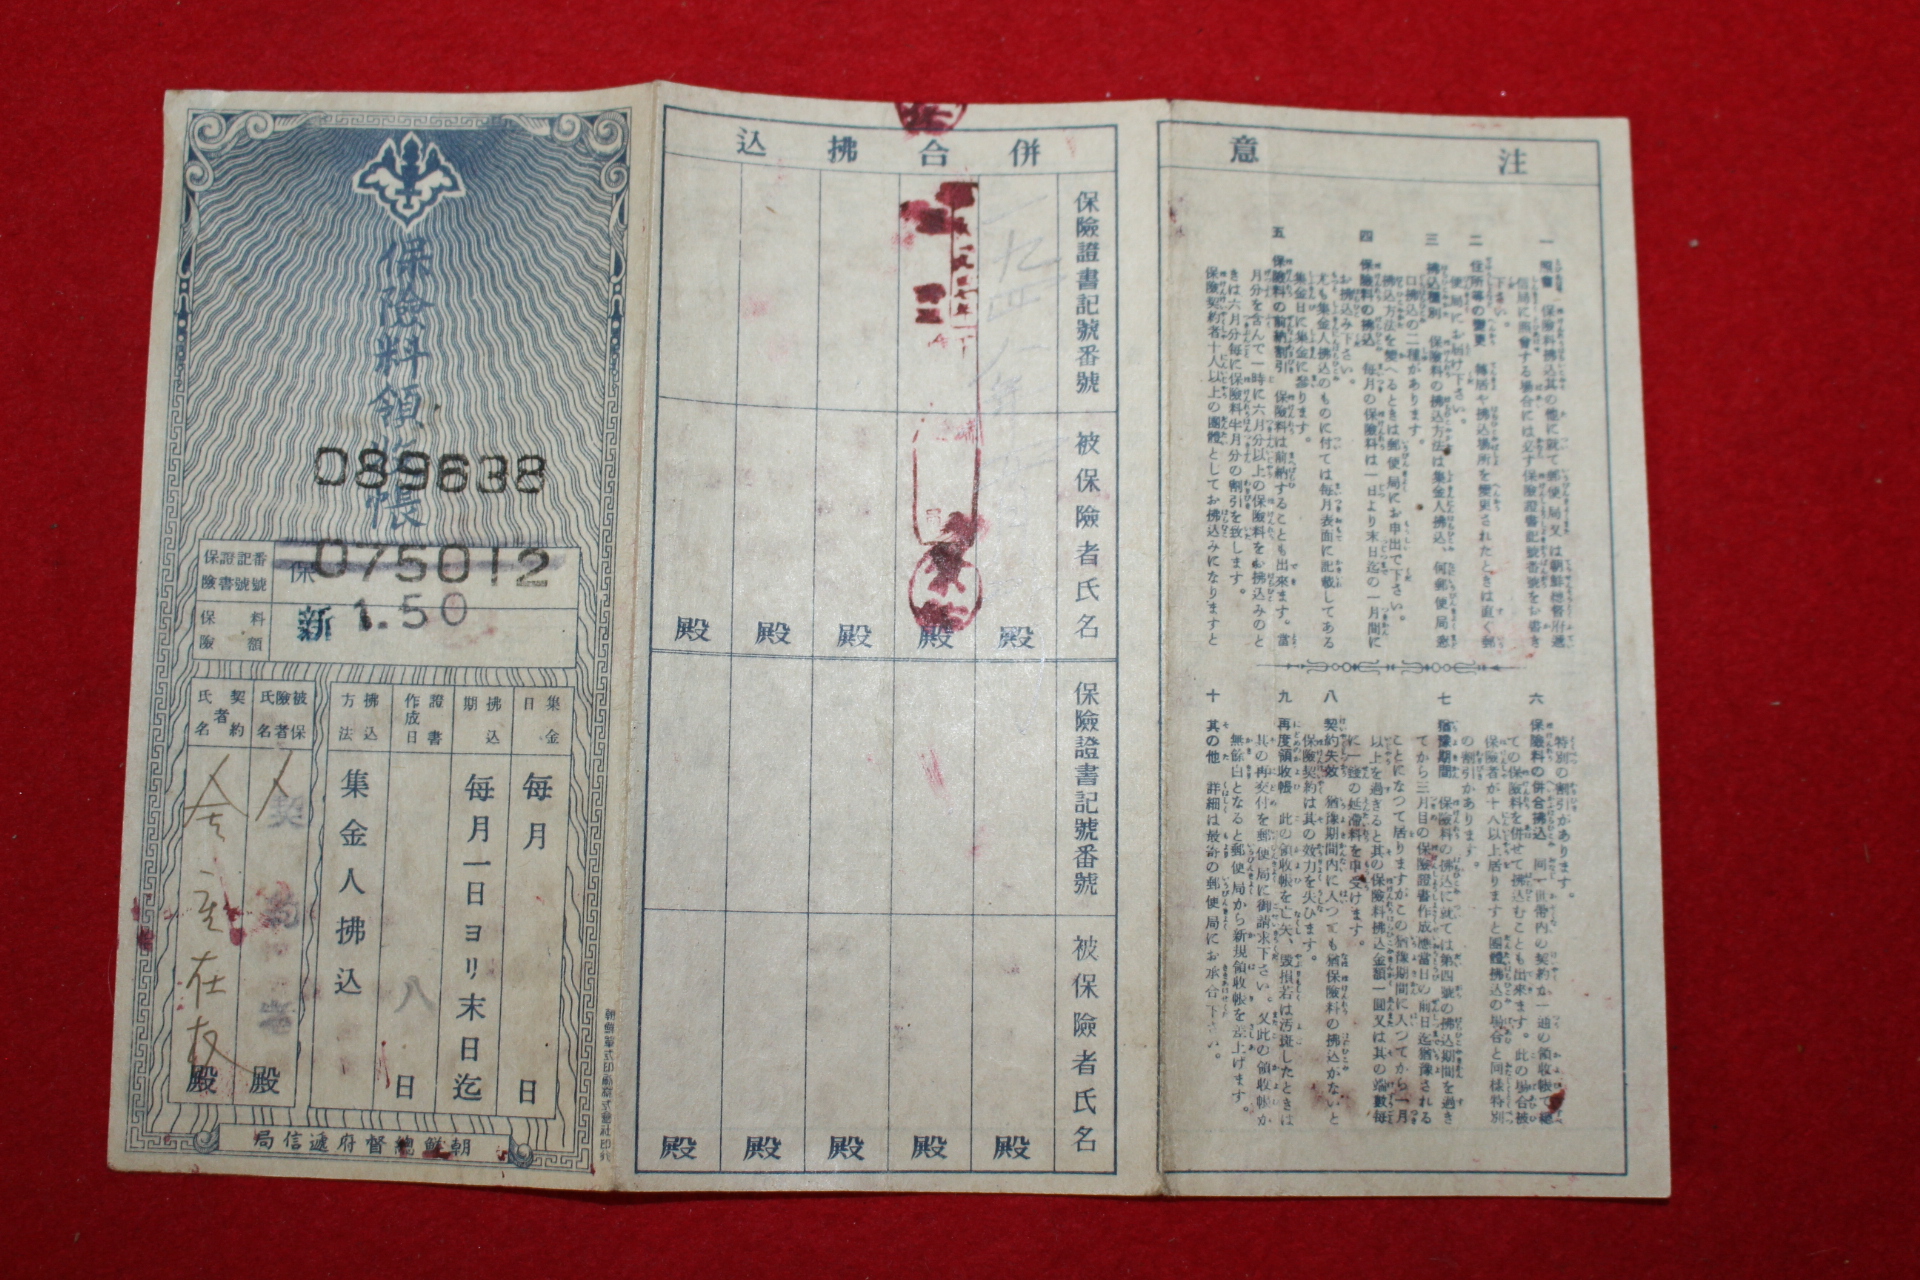 保險料領收帳
089638
保險證書記號番號
保
075012
保險料額
新 1.50
集金日
每月 日
拂込期
每月一日ヨリ末日迄
證書作成日
八 日
拂込方法
集金人拂込
被保險者氏名
契約者 殿
契約者氏名
在 殿
朝鮮總督府遞信局
併合拂込
保險證書記號番號
被保險者氏名
殿 殿 殿 殿 殿
保險證書記號番號
被保險者氏名
殿 殿 殿 殿 殿
注意
一 照會 保險料拂込其の他に就て郵便局又は朝鮮總督府遞
信局に照會する場合には必す保險證書記號番號をお書き
下さい。
二 住所等の變更 轉居や拂込場所を變更されたときは直く郵
便局にお届け下さい。
三 拂込種別 保險料の拂込方法は集金人拂込、何郵便局窓
口拂込の二種があります。
拂込方法を變へるときは郵便局にお申出で下さい。
四 保險料の拂込 每月の保險料は一日より末日迄の一月間に
お拂込み下さい。
尤も集金人拂込のものに付ては每月表面に記載してある
集金日に集金に參ります。
五 保險料の前納割引 保險料は前納することも出來ます。當
月分を含んで一時に六月分以上の保險料をお拂込みのと
きは六月分每に保險料半月分の割引を致します。
保險契約者十人以上の團體としてお拂込みになりますと
特別の割引があります。
六 保險料の併合拂込 同一世帶內の契約か一通の領收帳て總
ての保險料を併せて拂込むことも出來ます。此の場合被
保險者が十人以上居りますと團體拂込の場合と同樣特別
の割引かあります。
七 猶豫期間 保險料の拂込に就ては第四號の拂込期間を過き
てから三月目の保險證書作成應當日の前日迄猶豫される
ことになつて居りますがこの猶豫期間に入つてから一月
以上を過ぎると其の保險料拂込金額一圓又は其の端數每
に一錢の延滯料を申受けます。
八 契約失效 猶豫期間內に入つても猶保險料の拂込がないと
保險契約は其の效力を失ひます。
九 再度領收帳 此の領收帳を亡失、毀損若は汚斑したときは
其の再交付を郵便局に御請求下さい。又此の領收帳か
無餘白となると郵便局から新規領收帳を差上げます。
十 其の他 詳細は最寄の郵便局にお承合下さい。